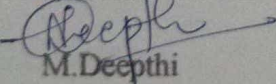 Deepthi
M.Deepthi